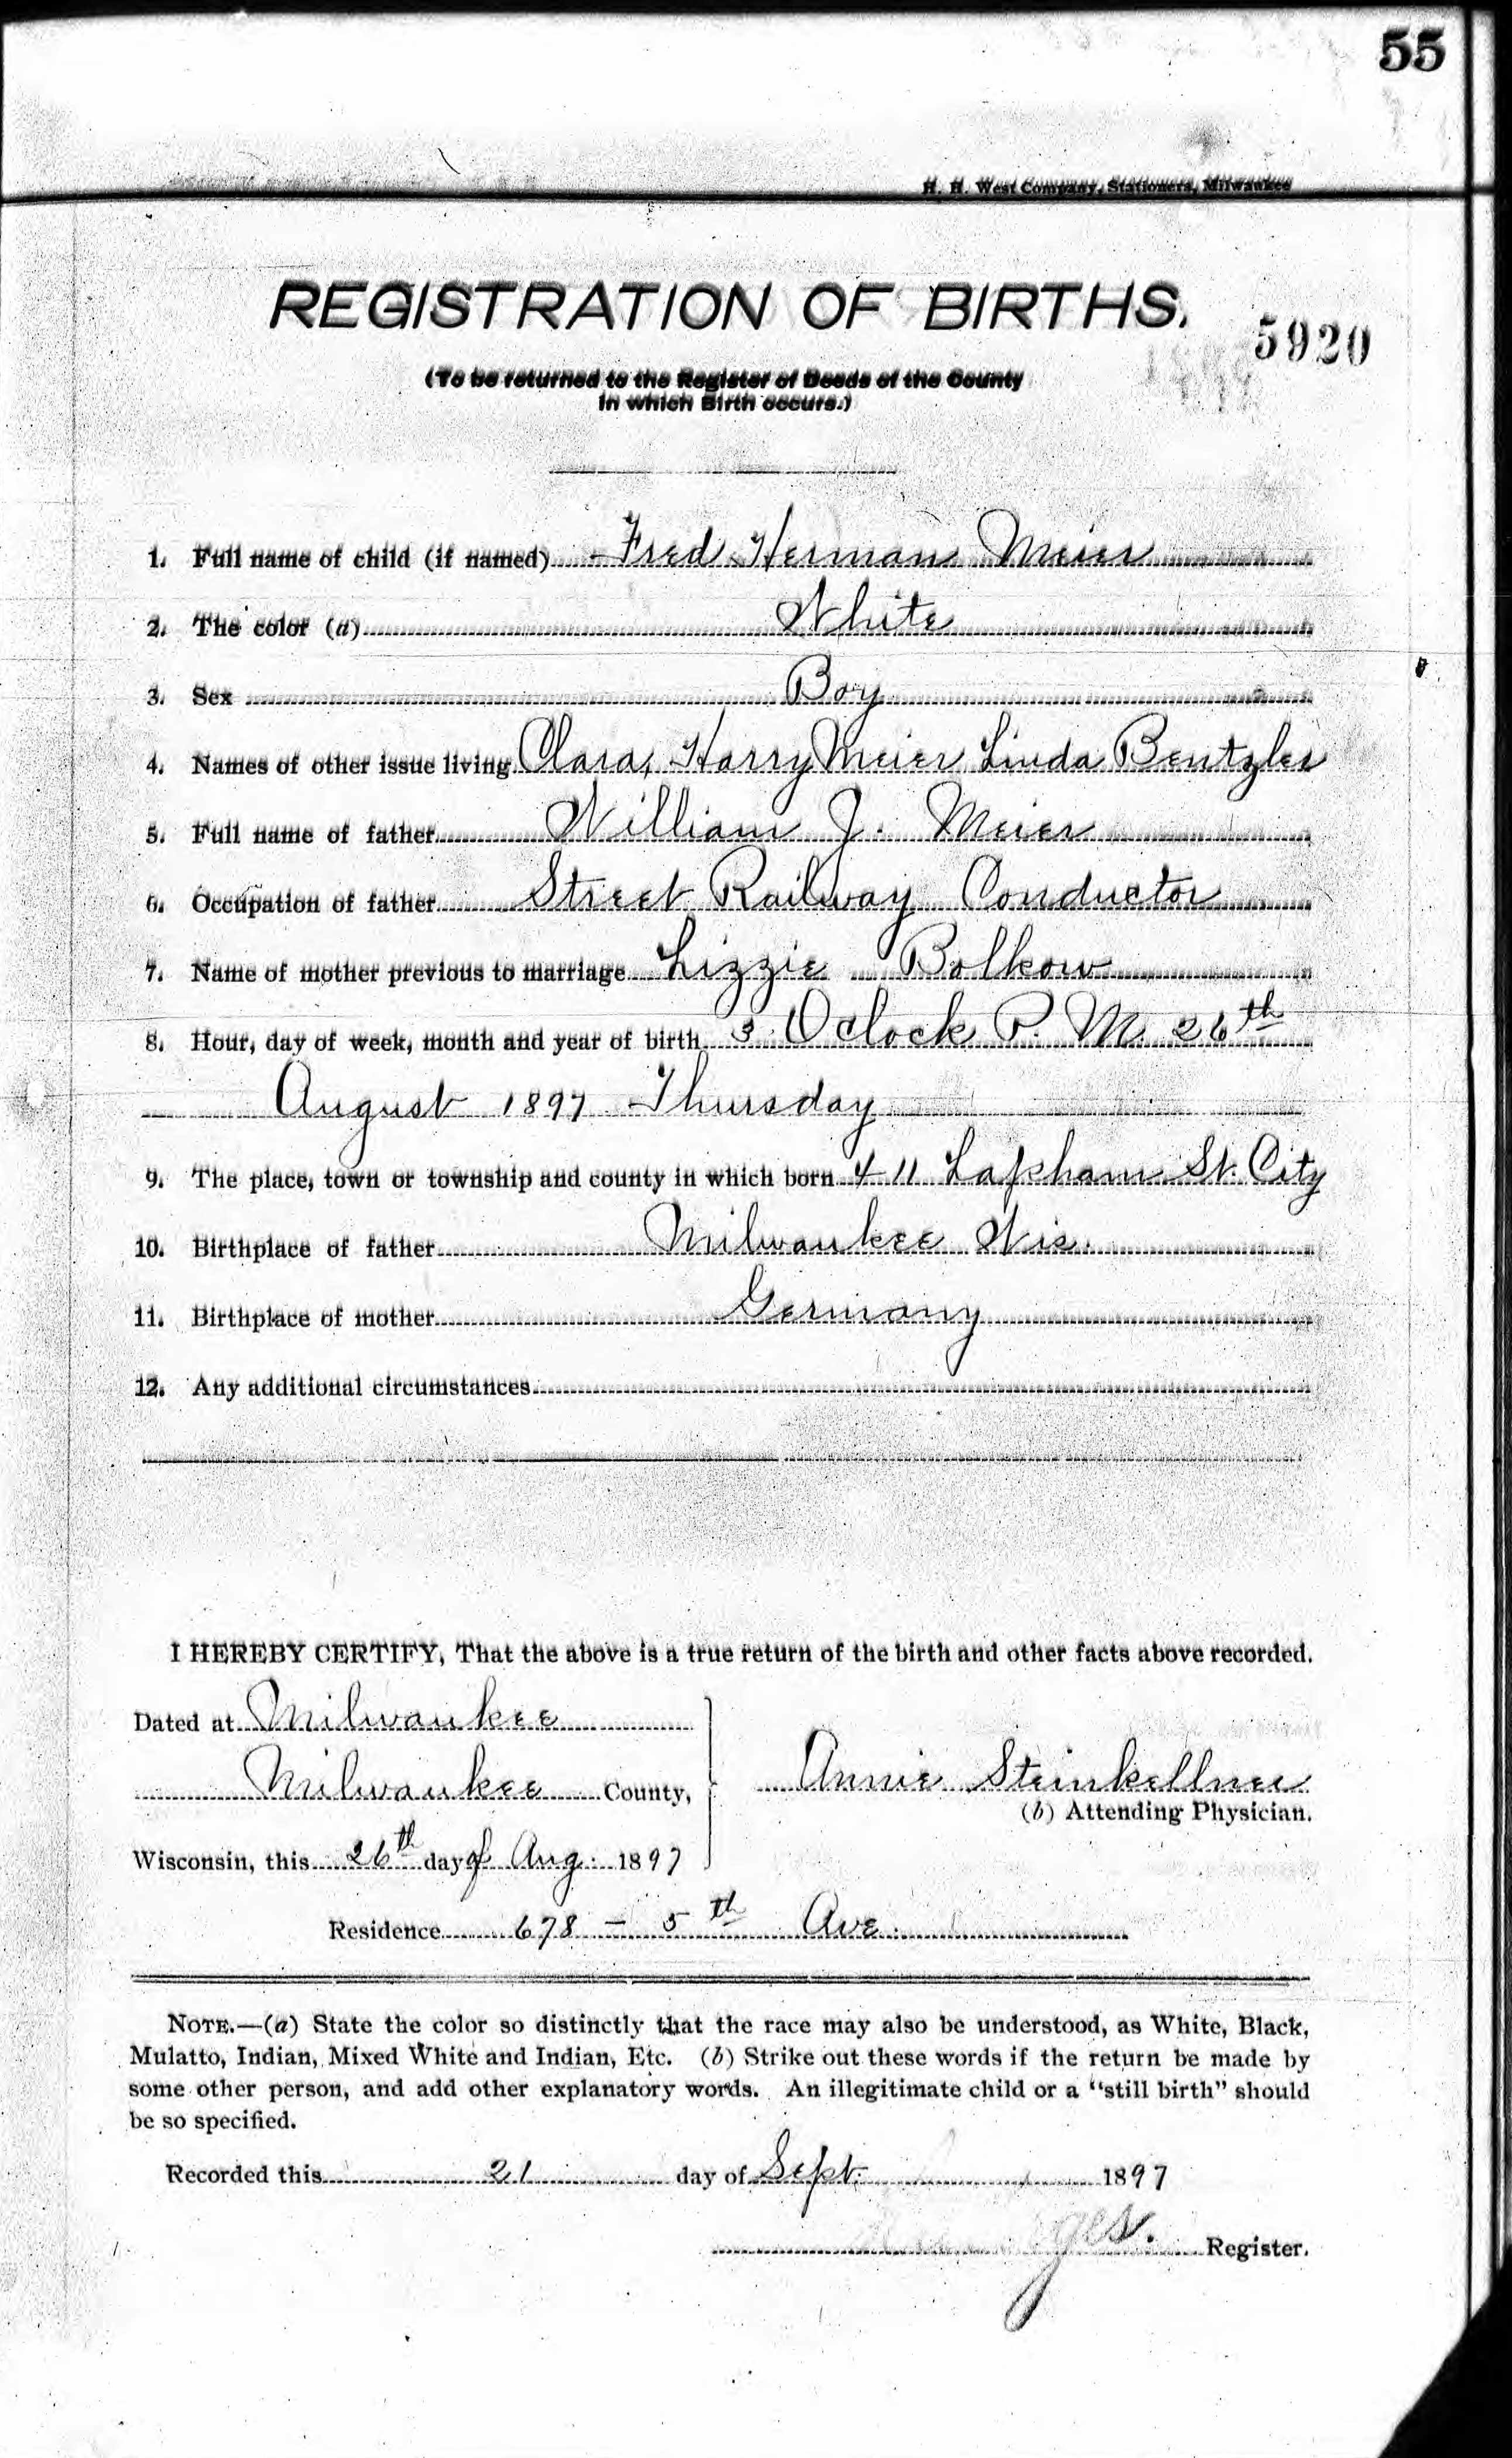 55
H. H. West Company, Stationers, Milwaukee
REGISTRATION OF BIRTHS.
5920
(To be returned to the Register of Deeds of the County
in which Birth occurs.)
1. Full name of child (if named) Fred Herman Meier
2. The color (a) White
3. Sex Boy
4. Names of other issue living Clara, Harry Meier Linda Bentzler
5. Full name of father William J. Meier
6. Occupation of father Street Railway Conductor
7. Name of mother previous to marriage Lizzie Bolkow
8. Hour, day of week, month and year of birth 3 Oclock P. M. 26th
August 1897 Thursday
9. The place, town or township and county in which born 411 Lapham St. City
10. Birthplace of father Milwaukee Wis.
11. Birthplace of mother Germany
12. Any additional circumstances
I HEREBY CERTIFY, That the above is a true return of the birth and other facts above recorded.
Dated at Milwaukee
Milwaukee County,
Annie Steinkellner
(b) Attending Physician.
Wisconsin, this 26th day of Aug. 1897
Residence 678 - 5th Ave.
NOTE.—(a) State the color so distinctly that the race may also be understood, as White, Black,
Mulatto, Indian, Mixed White and Indian, Etc. (b) Strike out these words if the return be made by
some other person, and add other explanatory words. An illegitimate child or a "still birth" should
be so specified.
Recorded this 21 day of Sept. 1897
Register.